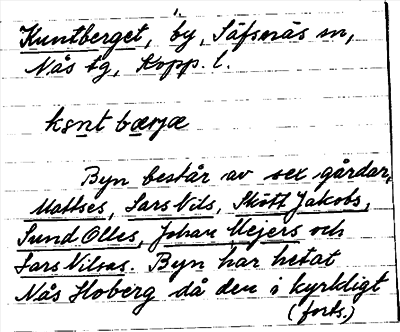 Kuntberget, by, Säfsnäs sn,
Nås tg, Kopp. l.
ksnt bærjæ
Byn består av sex gårdar,
Mattses, Lars Nils, Skött Jakobs,
Sund Olles, Johan Mejers och
Lars Nilsas. Byn har hetat
Nås Hoberg då den i kyrkligt
(forts.)